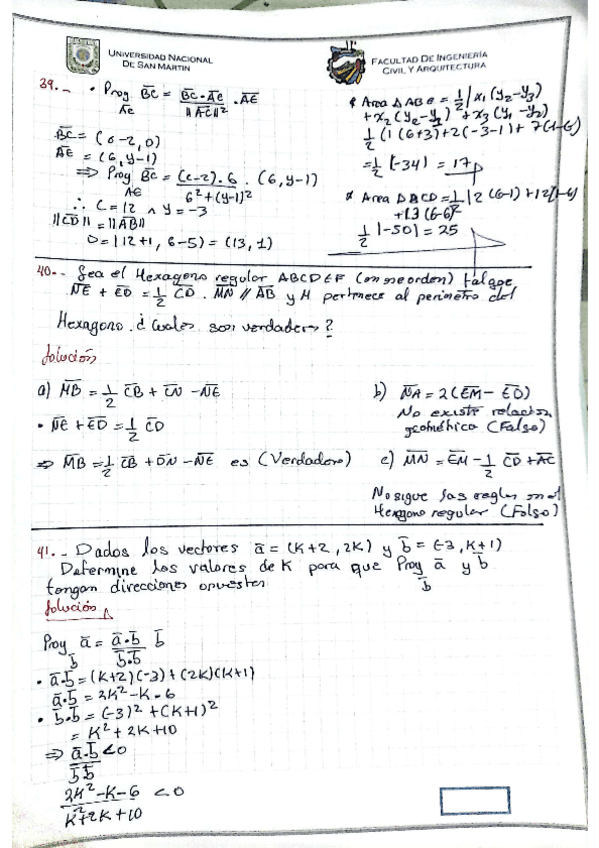 UNIVERSIDAD NACIONAL
DE SAN MARTIN
FACULTAD DE INGENIERÍA
CIVIL Y ARQUITECTURA
39.- • Proy BC̅ = BC̅•AE̅ / ||AC̅||² . AE̅
AE
BC̅ = (c-2, 0)
AE̅ = (6, y-1)
⇒ Proy BC̅ = (c-2).6 / 6²+(y-1)² . (6, y-1)
AE
∴ C=12 ∧ y=-3
||CD̅|| = ||AB̅||
D=(12+1, 6-5) = (13, 1)
* Area △ABE = 1/2 |x₁(y₂-y₃)
+x₂(y₂-y₁)+x₃(y₁-y₂)
1/2 (1(6+3)+2(-3-1)+7(1-6)
=1/2 |-34| = 17
* Area △ACD = 1/2 |2(6-1)+12(1-6)
+13(6-6)
1/2 |-50| = 25
40.- Sea el Hexagono regular ABCDEF (en ese orden) tal que
NE̅ + ED̅ = 1/2 CD̅ . MN̅ // AB̅ y M pertenece al perimetro del
Hexagono. ¿Cuales son verdaderas?
Solución
a) MB̅ = 1/2 CB̅ + DN̅ - NE̅
• NE̅ + ED̅ = 1/2 CD̅
⇒ MB̅ = 1/2 CB̅ + DN̅ - NE̅ es (Verdadero)
b) NA̅ = 2(EM̅ - ED̅)
No existe relacion
geométrica (Falso)
c) MN̅ = EM̅ - 1/2 CD̅ + AC̅
No sigue las reglas en el
Hexagono regular (Falso)
41.- Dados los vectores a̅ = (K+2, 2K) y b̅ = (-3, K+1)
Determine los valores de K para que Proy a̅ y b̅
b̅
tengan direcciones opuestas
Solución
Proy a̅ = a̅•b̅ / b̅•b̅ b̅
b̅
• a̅•b̅ = (K+2)(-3)+(2K)(K+1)
a̅•b̅ = 2K²-K-6
• b̅•b̅ = (-3)²+(K+1)²
= K²+2K+10
⇒ a̅•b̅ / b̅b̅ <0
2K²-K-6 / K²+2K+10 <0